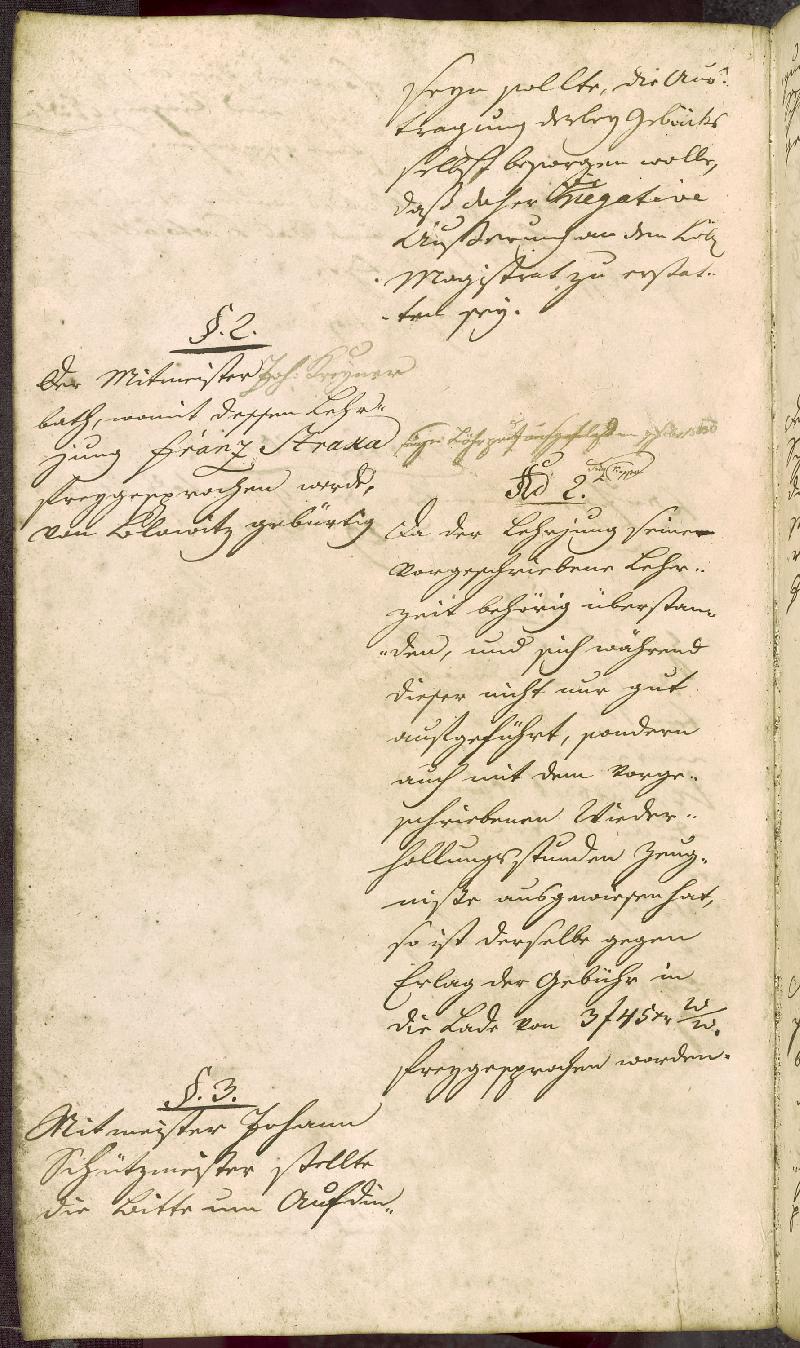 seyn sollte, die Aus-
tragung derley Gebäcks
selbst besorgen wolle,
daß daher die negative
Äußerung an den Löbl
Magistrat zu erstat-
ten sey.
§. 2.
Der Mitmeister Joh: Kreyner
bath, womit dessen Lehr-
jung Franz Straka
freygesprochen werde,
von Blowitz gebürtig
Ad 2.
Da der Lehrjung seine
vorgeschriebene Lehr-
zeit behörig überstan-
den, und sich während
dieser nicht nur gut
aufgeführt, sondern
auch mit dem vorge-
schriebenen Wieder-
hollungsstunden Zeug-
niße ausgewiesen hat,
so ist derselbe gegen
Erlag der Gebühr in
die Lade von 3 f 45 xr W/W.
freygesprochen worden.
§. 3.
Mitmeister Johann
Schützmeister stellte
die Bitte um Aufdin-